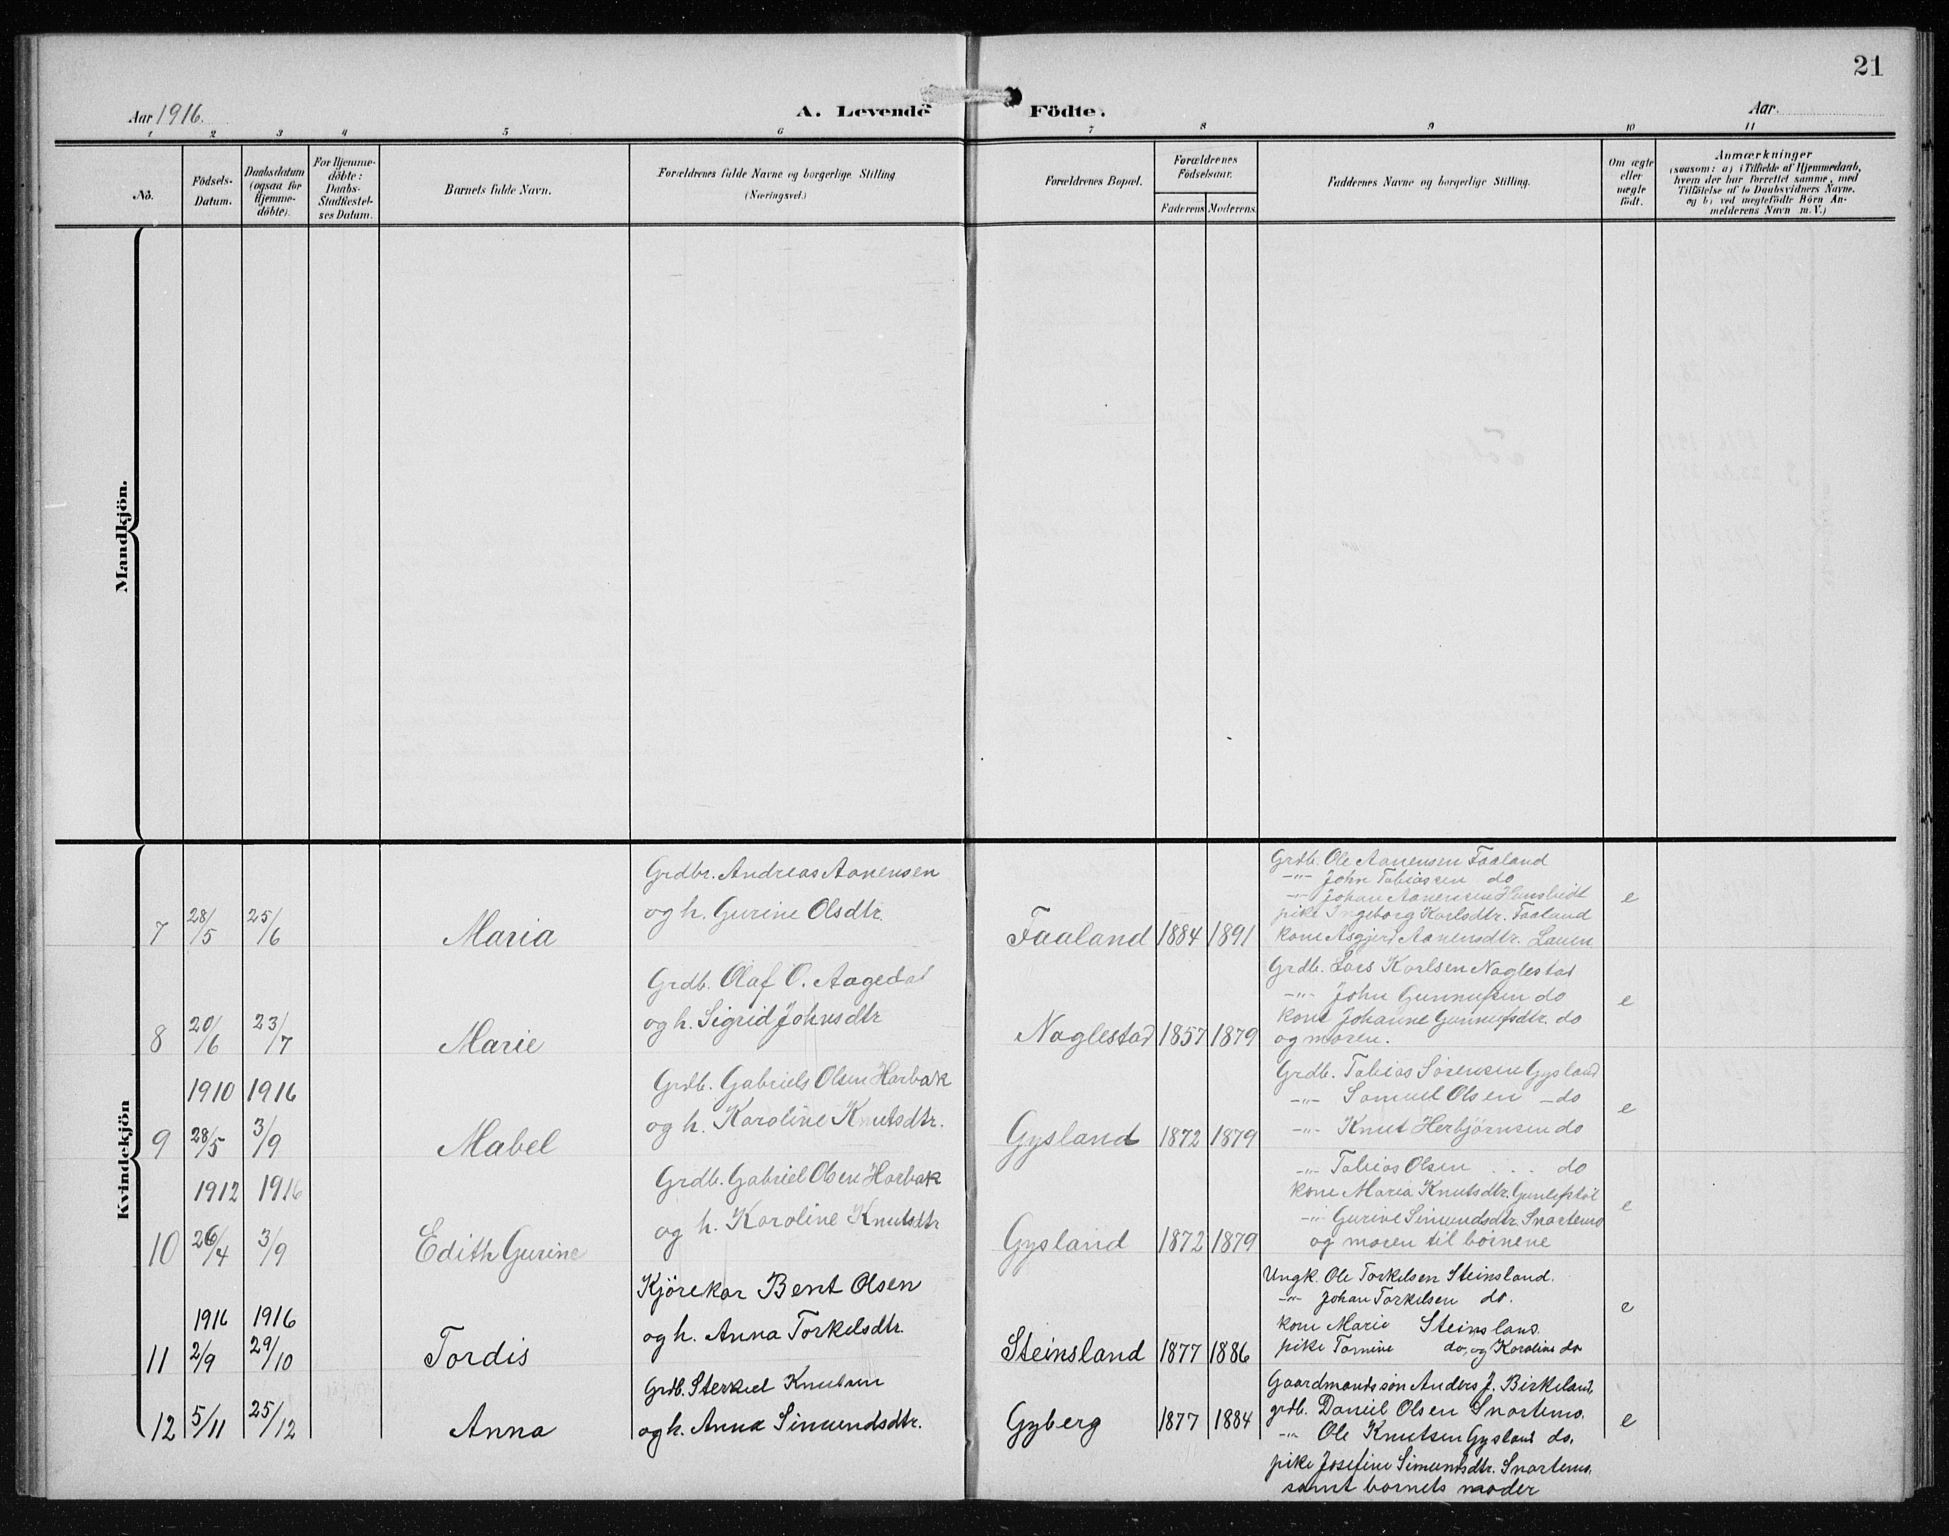 21
Aar 1916.
A. Levende Födte.
Aar
1 2 3 4 5 6 7 8 9 10 11
No.
Födsels-Datum.
Daabsdatum (ogsaa for Hjemme-döbte).
For Hjemme-döbte: Daabs-Stadfæstel-ses Datum.
Barnets fulde Navn.
Forældrenes fulde Navne og borgerlige Stilling (Næringsvei.)
Forældrenes Bopæl.
Forældrenes Födselsaar.
Faderens Moderens.
Faddernes Navne og borgerlige Stilling.
Om ægte eller uægte födt.
Anmærkninger
(saasom: a) i Tilfælde af Hjemmedaab, hvem der har forrettet samme, med Tilföielse af to Daabsvidners Navne. og b) ved uægtefödte Börn An-melderens Navn m. V.)
Mandkjön.
Kvindekjön
7 28/5 25/6 Maria
Grdbr. Andreas Aanensen
og h. Gurine Olsdtr.
Faaland 1884 1891
Grdb. Ole Aanensen Faaland
-"- John Tobiassen do
-"- Johan Aanensen
pike Ingeborg Karlsdtr. Faaland
kone Asgjerd Aanensdtr. Lauen
e
8 20/6 23/7 Marie
Grdb. Olaf O. Aagedal
og h. Sigrid Johnsdtr
Naglestad 1857 1879
Grdb. Lars Karlsen Naglestad
-"- John Gunnufsen do
kone Johanne Gunnufsdtr. do
og moren.
e
1910 1916
9 28/5 3/9 Mabel
Grdb. Gabriels Olsen Harbak
og h. Karoline Knutsdtr.
Gysland 1872 1879
Grdb. Tobias Sørensen Gysland
-"- Samuel Olsen -do
-"- Knut Herbjørnsen do
e
1912 1916
10 26/4 3/9 Edith Gurine
Grdb. Gabriel Olsen Harbak
og h. Karoline Knutsdtr
Gysland 1872 1879
-"- Tobias Olsen do
kone Maria Knutsdtr.
-"- Gurine Simundsdtr. Snartemo
og moren til børnene
e
1916 1916
11 2/9 29/10 Tordis
Kjörekar Bent Olsen
og h. Anna Torkelsdtr.
Steinsland 1877 1886
Ungk. Ole Torkelsen Steinsland.
-"- Johan Torkelsen do.
kone Marie Steinsland.
pike Tomine do, og Karoline do
e
12 5/11 25/12 Anna
Grdb. Sterkel Knutsen
og h. Anna Simundsdtr.
Gyberg 1877 1884
Gaardmandssøn Anders J. Birkeland,
grdb. Daniel Olsen Snartemo.
-"- Ole Knutsen Gysland do.
pike Josefine Simundsdtr. Snartemo.
samt barnets moder
e